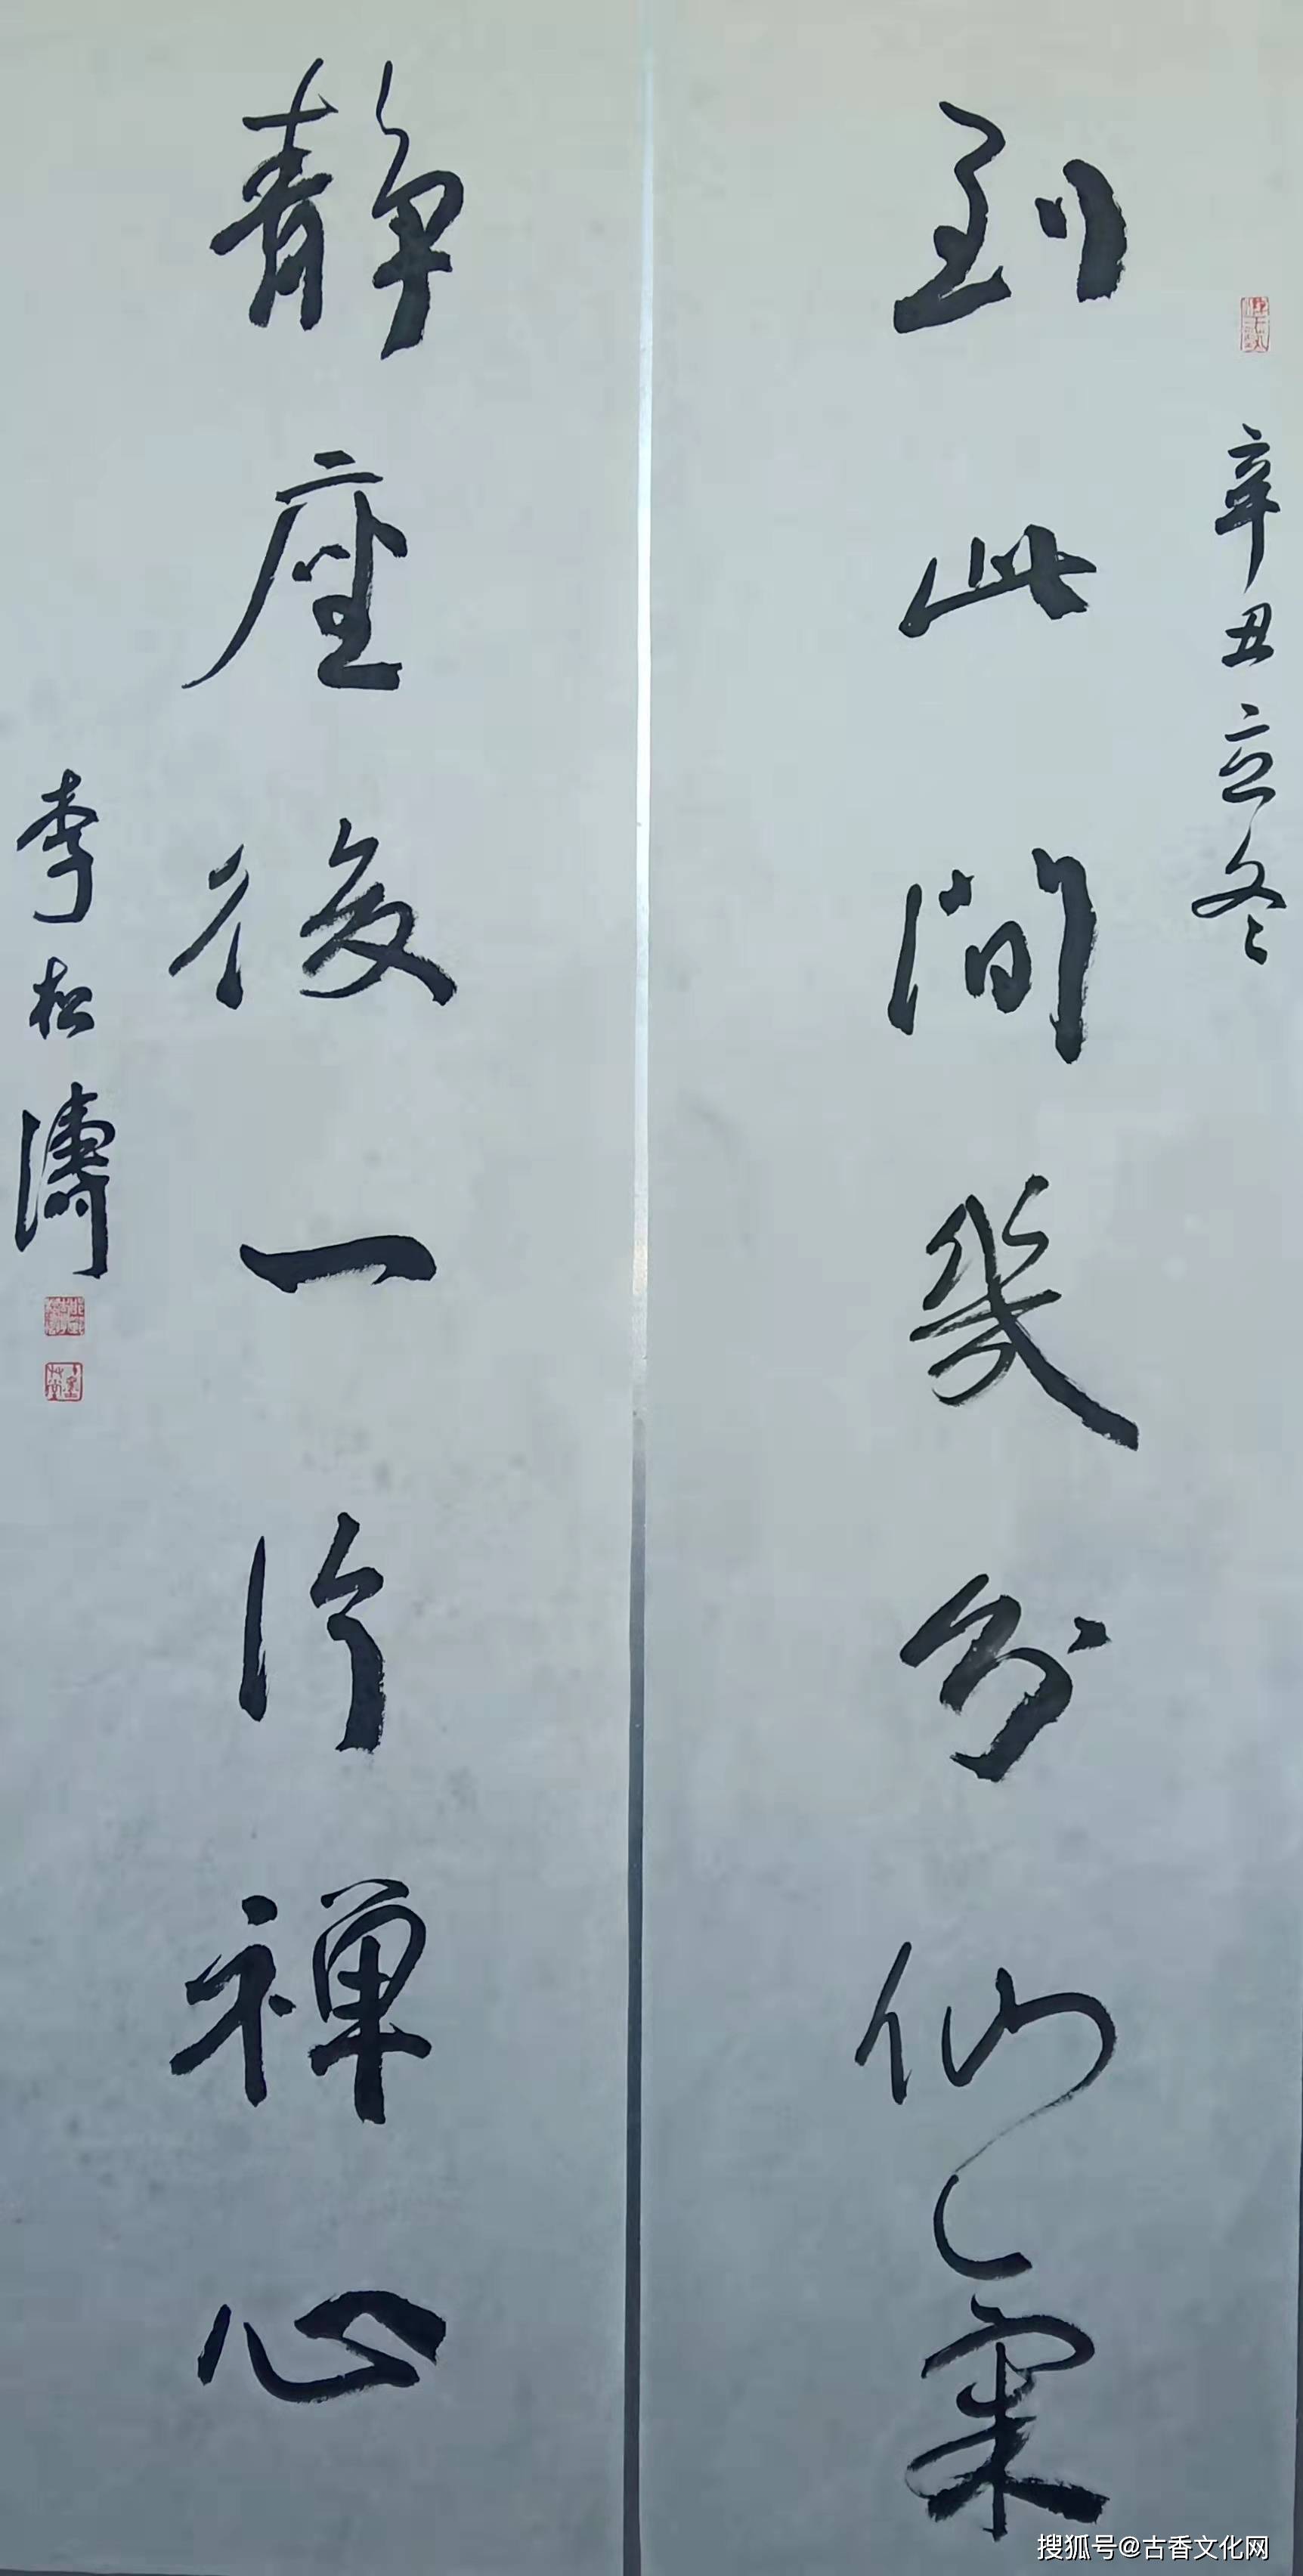 辛丑立冬
到此間幾分仙氣
静座後一片禅心
李松濤
搜狐号@古香文化网